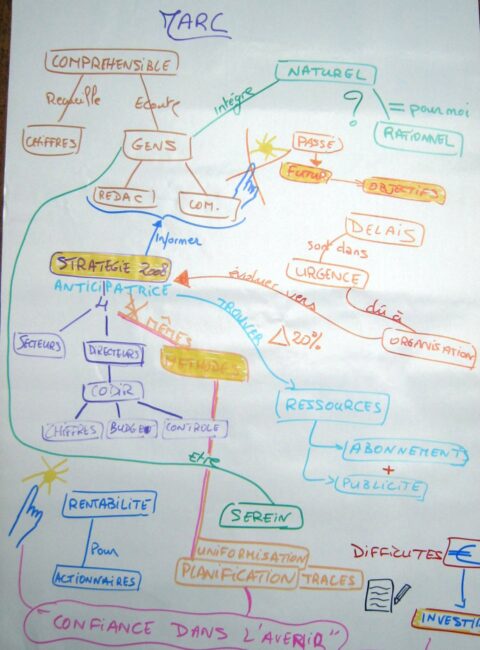 MARC
COMPREHENSIBLE
NATUREL
Recueille
Ecoute
Intégre
?
= pour moi
CHIFFRES
GENS
RATIONNEL
PASSÉ
FUTUR
OBJECTIFS
REDAC
COM.
DELAIS
Informer
sont dans
STRATEGIE 2008
URGENCE
ANTICIPATRICE
évoluer vers
dû à
4
TROUVER
MÊMES
20%
ORGANISATION
SECTEURS
DIRECTEURS
METHODES
CODIR
RESSOURCES
CHIFFRES
BUDGET
CONTROLE
ABONNEMENTS
+
ETRE
PUBLICITÉ
RENTABILITÉ
SEREIN
POUR
UNIFORMISATION
DIFFICUTES €
ACTIONNAIRES
PLANIFICATION TRACES
INVESTIR
"CONFIANCE DANS L'AVENIR"